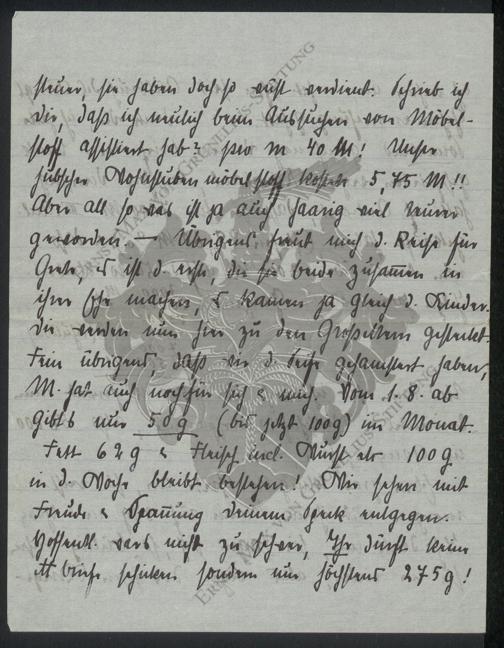 teuer, sie haben doch so nicht verdient. Schrieb ich
Dir, daß ich neulich beim Aussuchen von Möbel-
stoff assistiert hab? pro m 40 M! Unser
hübscher Wohnstubenmöbelstoff kostete 5,75 M!!
Aber all so was ist ja auch viel teurer
geworden. — Übrigens freut mich d. Reise für
Grete, es ist d. erste, die sie beide zusammen in
ihrer Ehe machen, es kamen ja gleich d. Kinder.
Die werden nun hier zu den Großeltern gesteckt.
Fein übrigens, daß wir d. gehamstert haben,
M. hat auch noch für sich & mich. Vom 1. 8. ab
gibt's nur 50 g (bis jetzt 100 g) im Monat.
Fett 62 g & Fleisch incl. Wurst etc 100 g
in d. Woche bleibt bestehen! Wir sehen mit
Freude & Spannung Deinem Speck entgegen.
Hoffentl. war's nicht zu schwer, Ihr dürft keine
briefe schicken sondern nur höchstens 275 g!
ERNST MAX VON GRUNELIUS-STIFTUNG
ERNST MAX VON GRUNELIUS-STIFTUNG